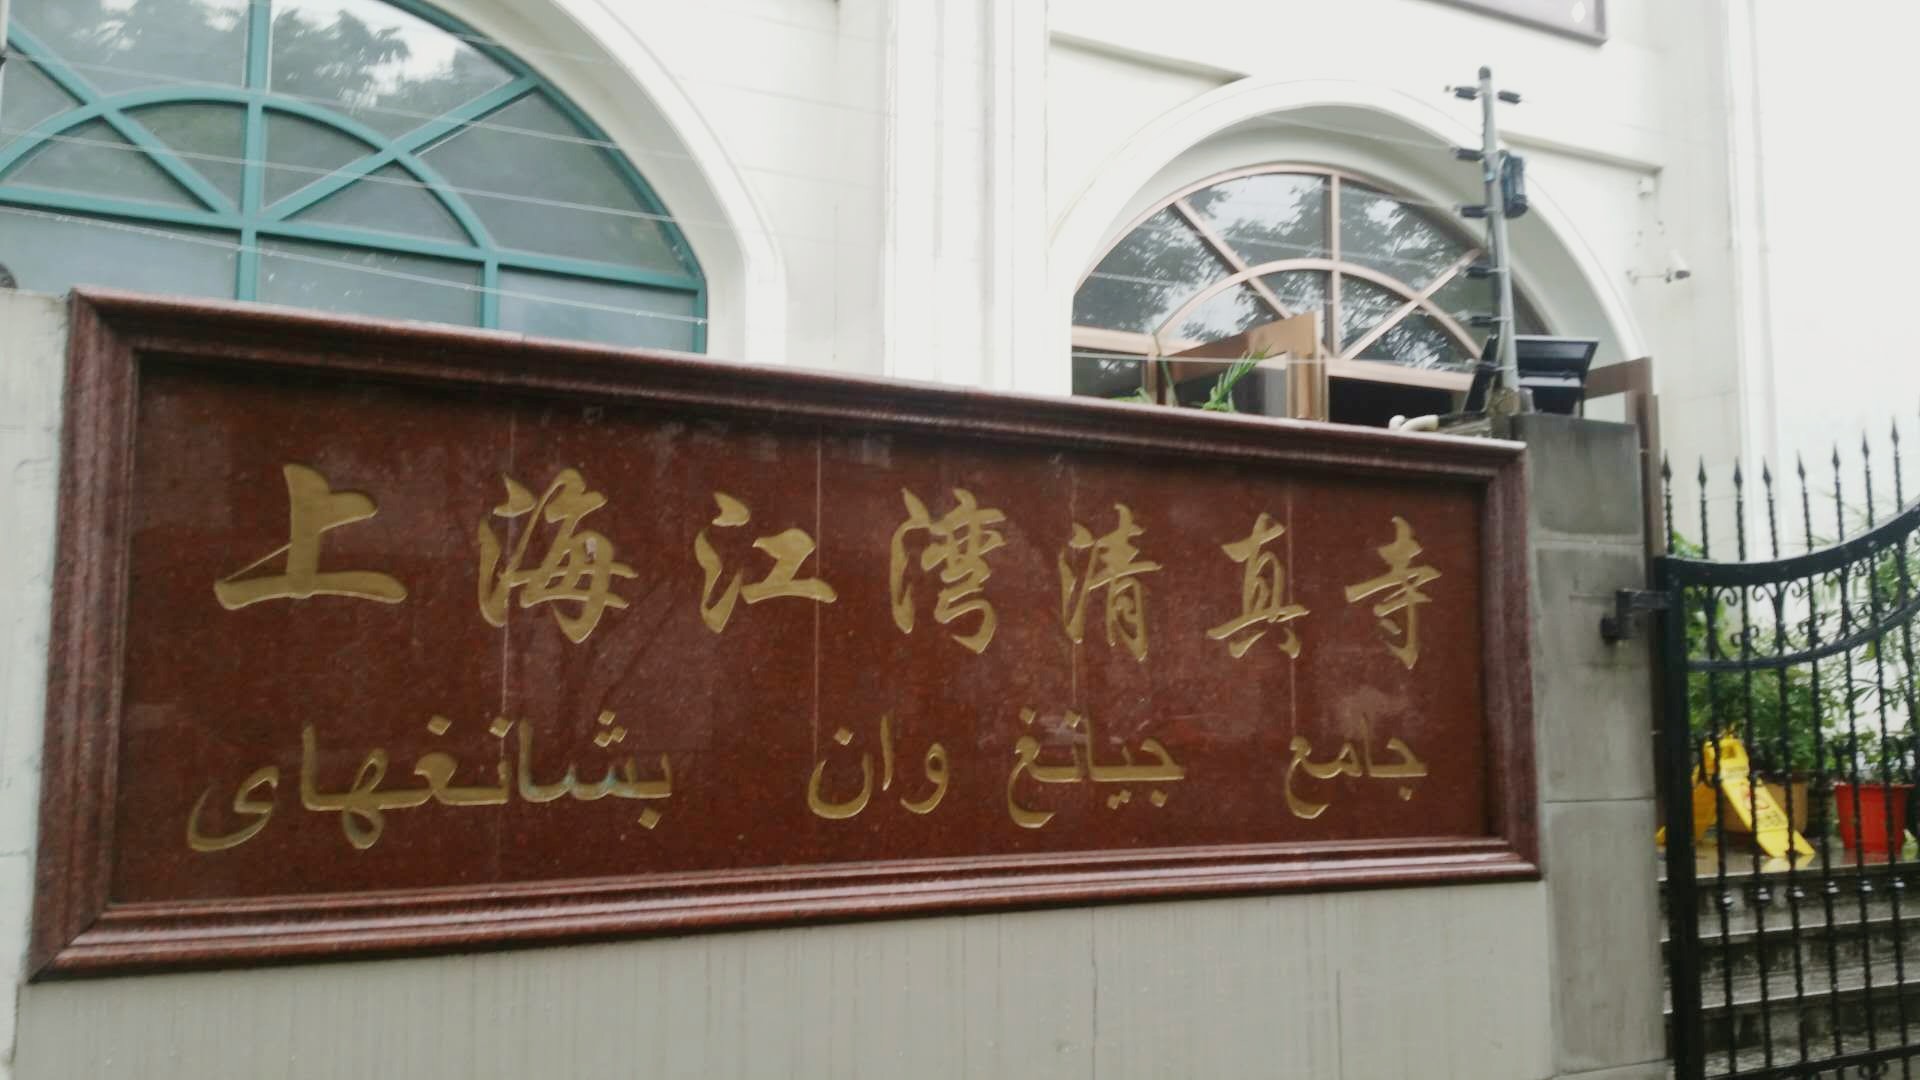 上海江湾清真寺
جامع جيانغ وان بشانغهاى